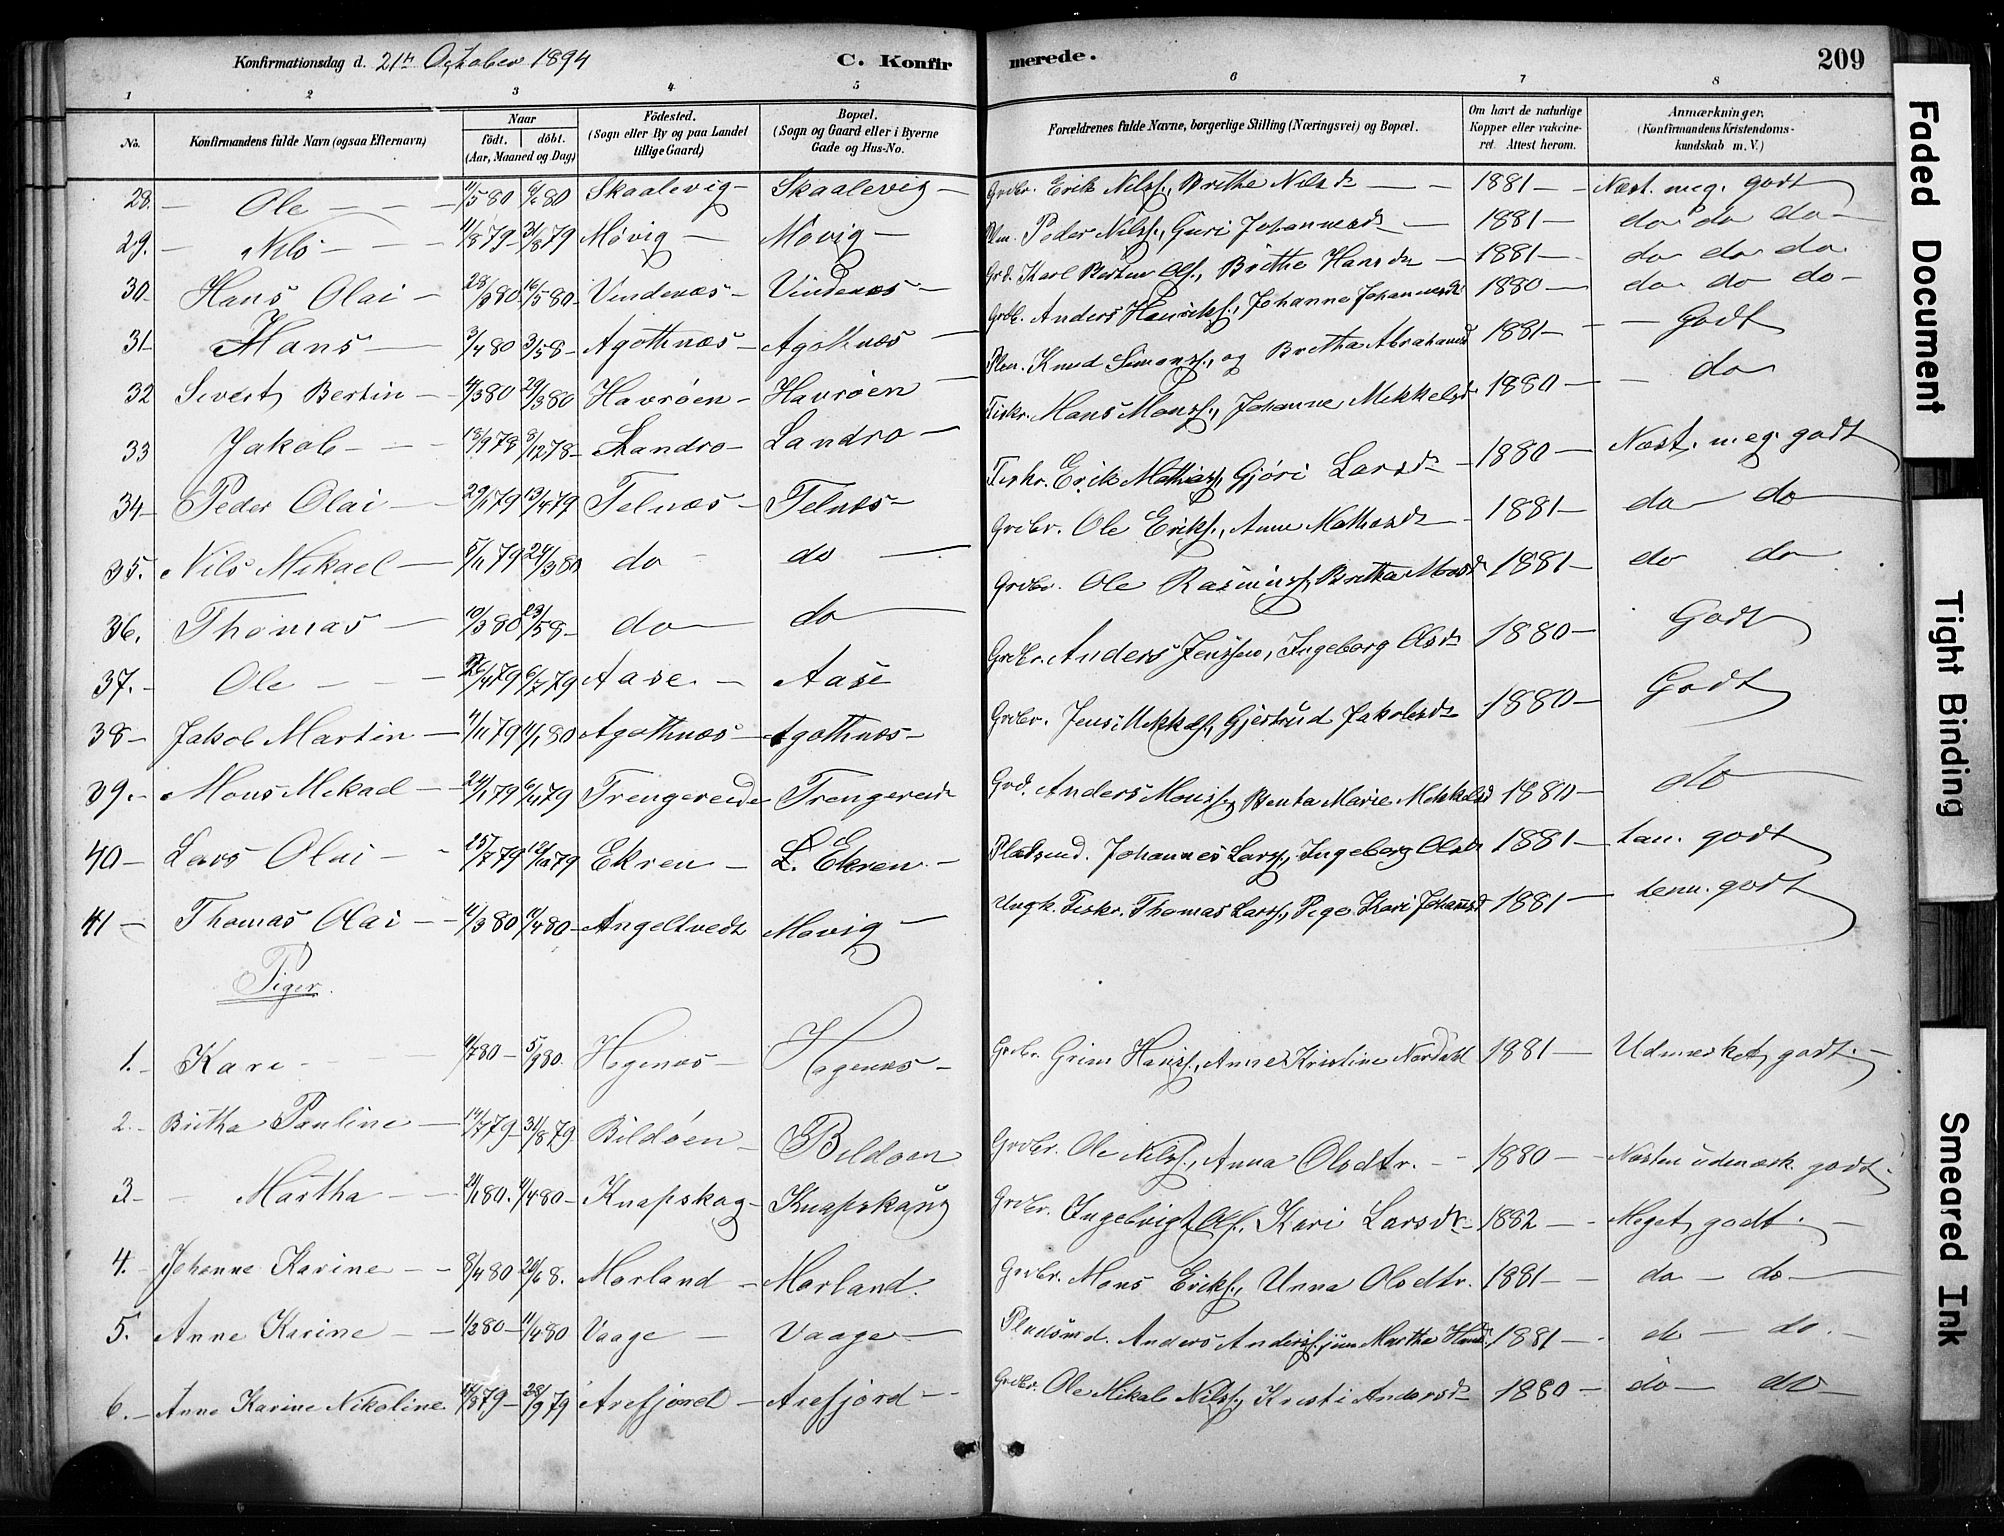 Konfirmationsdag d. 21de October 1894
C. Konfirmerede.
209
1 2 3 4 5 6 7 8
No. Konfirmandens fulde Navn (ogsaa Efternavn) Naar født. døbt. (Aar, Maaned og Dag) Födested. (Sogn eller By og paa Landet tillige Gaard) Bopæl. (Sogn og Gaard eller i Byerne Gade og Hus-No. Forældrenes fulde Navne, borgerlige Stilling (Næringsvei) og Bopæl. Om havt de naturlige Kopper eller vakcineret. Attest herom. Anmærkninger. (Konfirmandens Kristendomskundskab m. V.)
28. Ole 11/5 80 6/6 80 Skaalevig Skaalevig Grdbr. Erik Nilsf., Brithe Nilsdr 1881 Næst. meg. godt
29. Nils 11/8 79 31/8 79 Møvig Møvig Plm. Peder Nilsf., Guri Johannesdr 1881 do do do
30 Hans Olai 28/3 80 16/5 80 Vindenæs Vindenæs Grd. Karl Bertin Olsf., Brithe Hansdr 1881 do do do
31 Hans 3/4 80 3/5 8 Agothnæs Agothnæs Grdbr. Anders Henriksf., Johanne Johannesdr 1880 do do do
32 Sivert Bertin 4/3 80 29/3 80 Havrøen Havrøen Plm. Knud Simonsf., og Bretha Abrahamsd 1881 Godt
33 Jakob 18/9 78 8/12 78 Landro Landro Fiskr. Mons Monsf., Johanne Mekkelsd 1880 do
34 Peder Olai 29/1 79 13/4 79 Telnæs Telnæs Fiskr. Erik Mathiasf., Gjøri Larsdr 1880 Næst. meg. godt
35. Nils Mikael 5/11 79 29/3 80 do do Grdbr. Ole Eriksf., Anna Mathesdr 1881 do do
36. Thomas 10/3 80 23/5 8 do do Grdbr. Ole Rasmusf., Bretha Monsd 1881 do do
37. Ole 26/4 79 6/7 79 Aase Aase Grdbr. Anders Jenssen, Ingeborg Olsdr 1880 Godt
38 Jakob Martin 11/11 79 11/1 80 Agothnæs Agothnæs Grdbr. Jens Mekkelsf., Gjertrud Jakobsdr 1880 Godt
39. Mons Mikael 24/1 79 6/4 79 Trengereide Trengereide Grd. Anders Monsf., Benta Marie Mekkelsd 1880 do
40 Lars Olai 25/7 79 12/10 79 Ekren L. Ekren Pladsmd. Johannes Larsf., Ingeborg Olsdr 1881 tem. godt
41 Thomas Olai 11/3 80 11/4 80 Angeltvedt Møvig Ungk. Fiskr. Thomas Larsf., Pige Kari Johannsd 1881 tem. godt
Piger.
1. Kari 11/7 80 5/9 80. Hegenæs Hegenæs Grdbr. Grim Hansf., Anne Kristine Nordahl 1881 Udmerket godt.
2. Britha Pauline 14/7 79 31/8 79 Bildøen Bildøen Grdbr. Ole Nilsf., Anna Olsdtr. 1880 Næsten udmærk. godt.
3. Martha 21/1 80. 11/4 80 Knapskog Knapskaug Grdbr. Ingebrigt Olsf. Kari Larsdr 1882 Meget godt.
4. Johanne Karine 8/4 80 20/6 8. Morland Morland. Grdbr. Mons Eriksf., Unna Olsdtr. 1881 do do
5. Anne Karine 1/2 80 11/4 80 Vaage Vaage Pladsmd. Anders Andersf. jun Martha Hansd. 1881 do do.
6. Anne Karine Nikoline 14/8 79 28/9 79 Arefjord Arefjord Grdbr. Ole Mikal Nilsf., Kristi Andersdr 1880 do do
Faded Document
Tight Binding
Smeared Ink